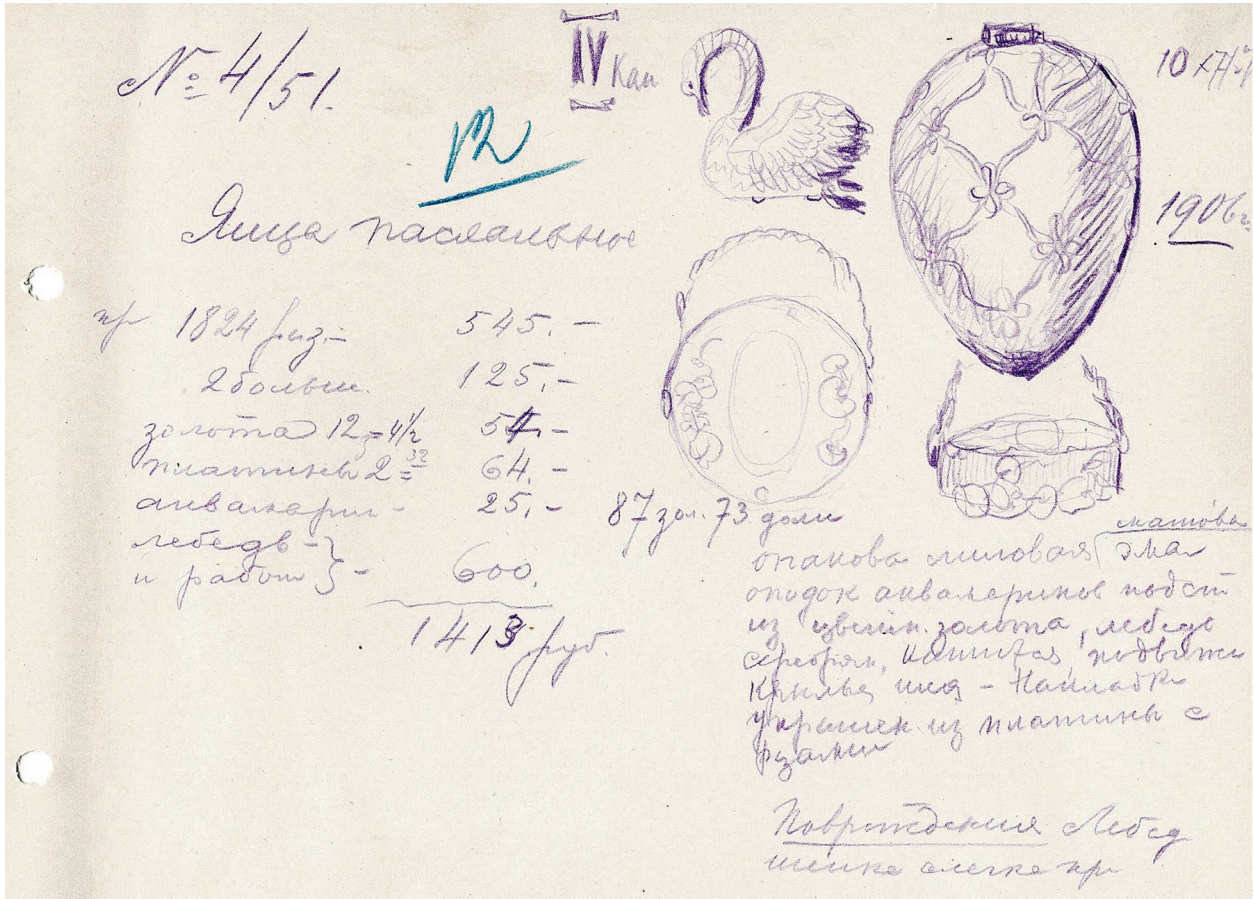 № 4/51.
IV Кап
10 х 7
1906 г
Яица пасхальное
пр 1824 роз.- 545.-
2 больш. 125.-
золота 12 = 4½ 54.-
платины 2 = 32 64.-
аквамарин - 25.-
лебедь -
и работ } - 600.
1413 руб.
87 зол. 73 доли
матова
опакова лиловая эмал
ободок аквамаринов подст
из цветн. золота, лебедь
серебрян, подвижн
Крылья, шея - Накладк
украшен. из платины с
розами
Повреждения Лебед
шейка слегка пр